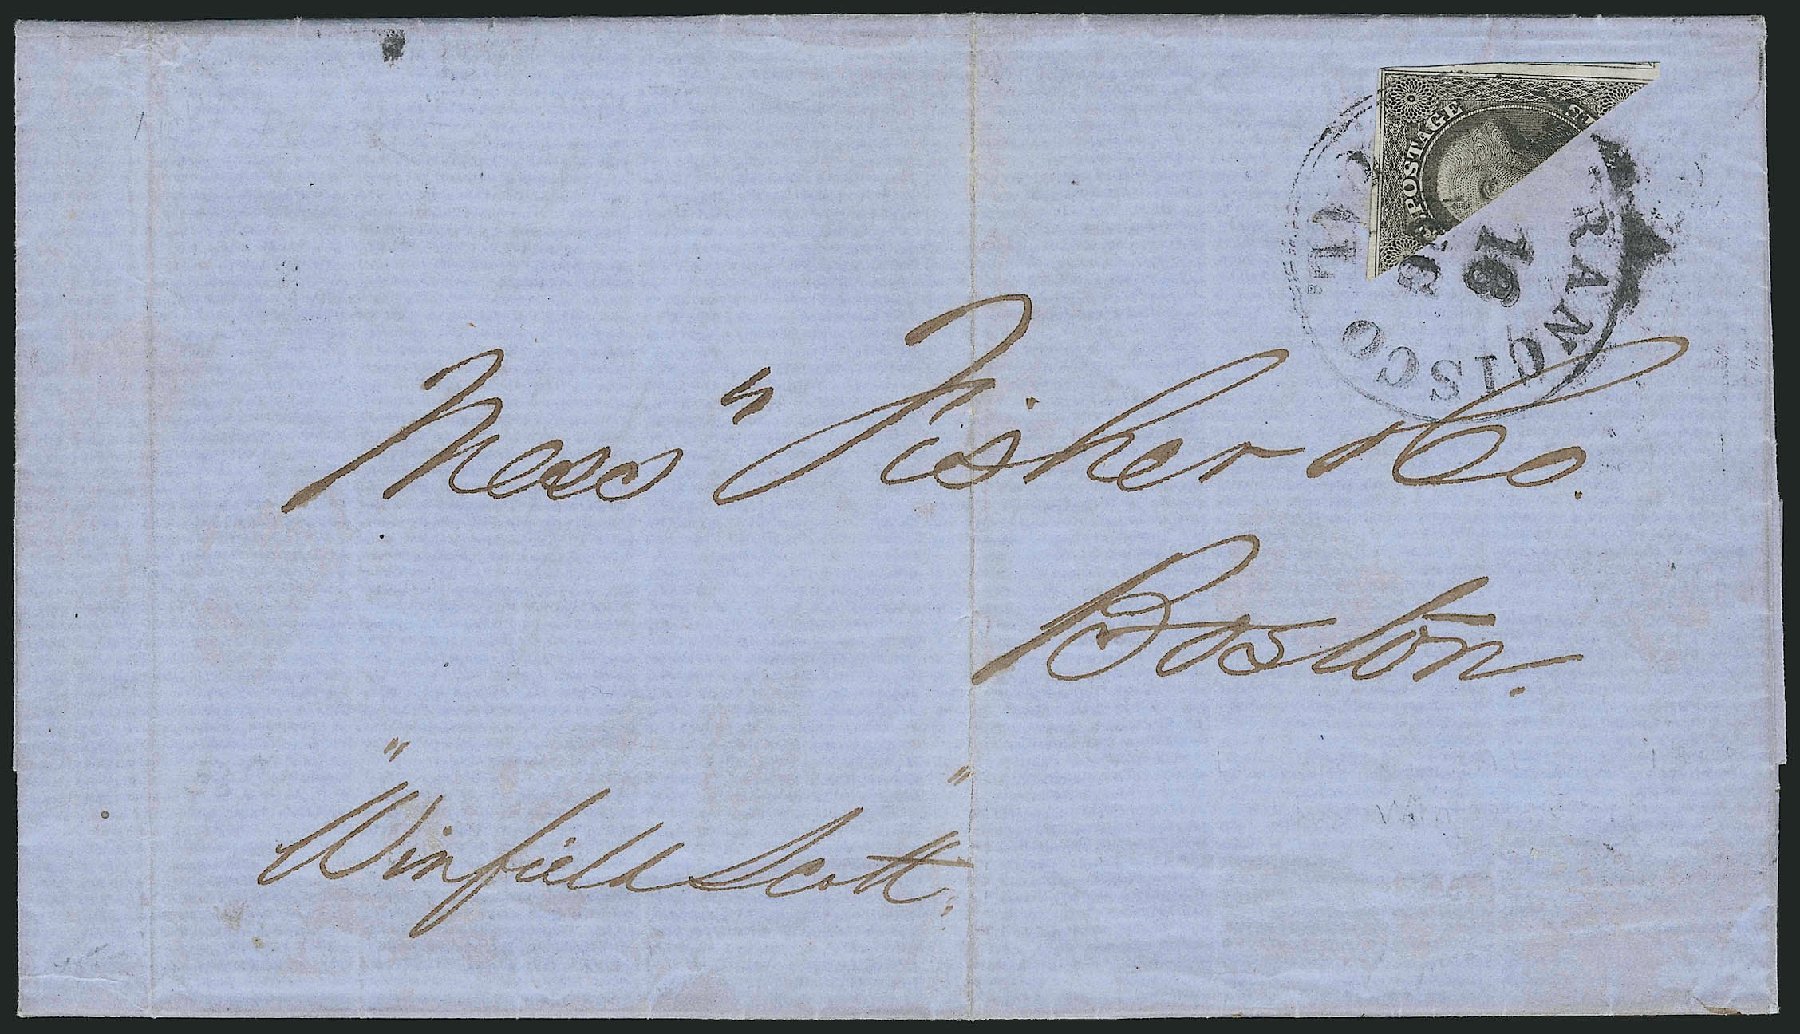 POSTAGE
FRANCISCO
CAL
16
Mess" Fisher & Co.
Boston.
"Winfield Scott".